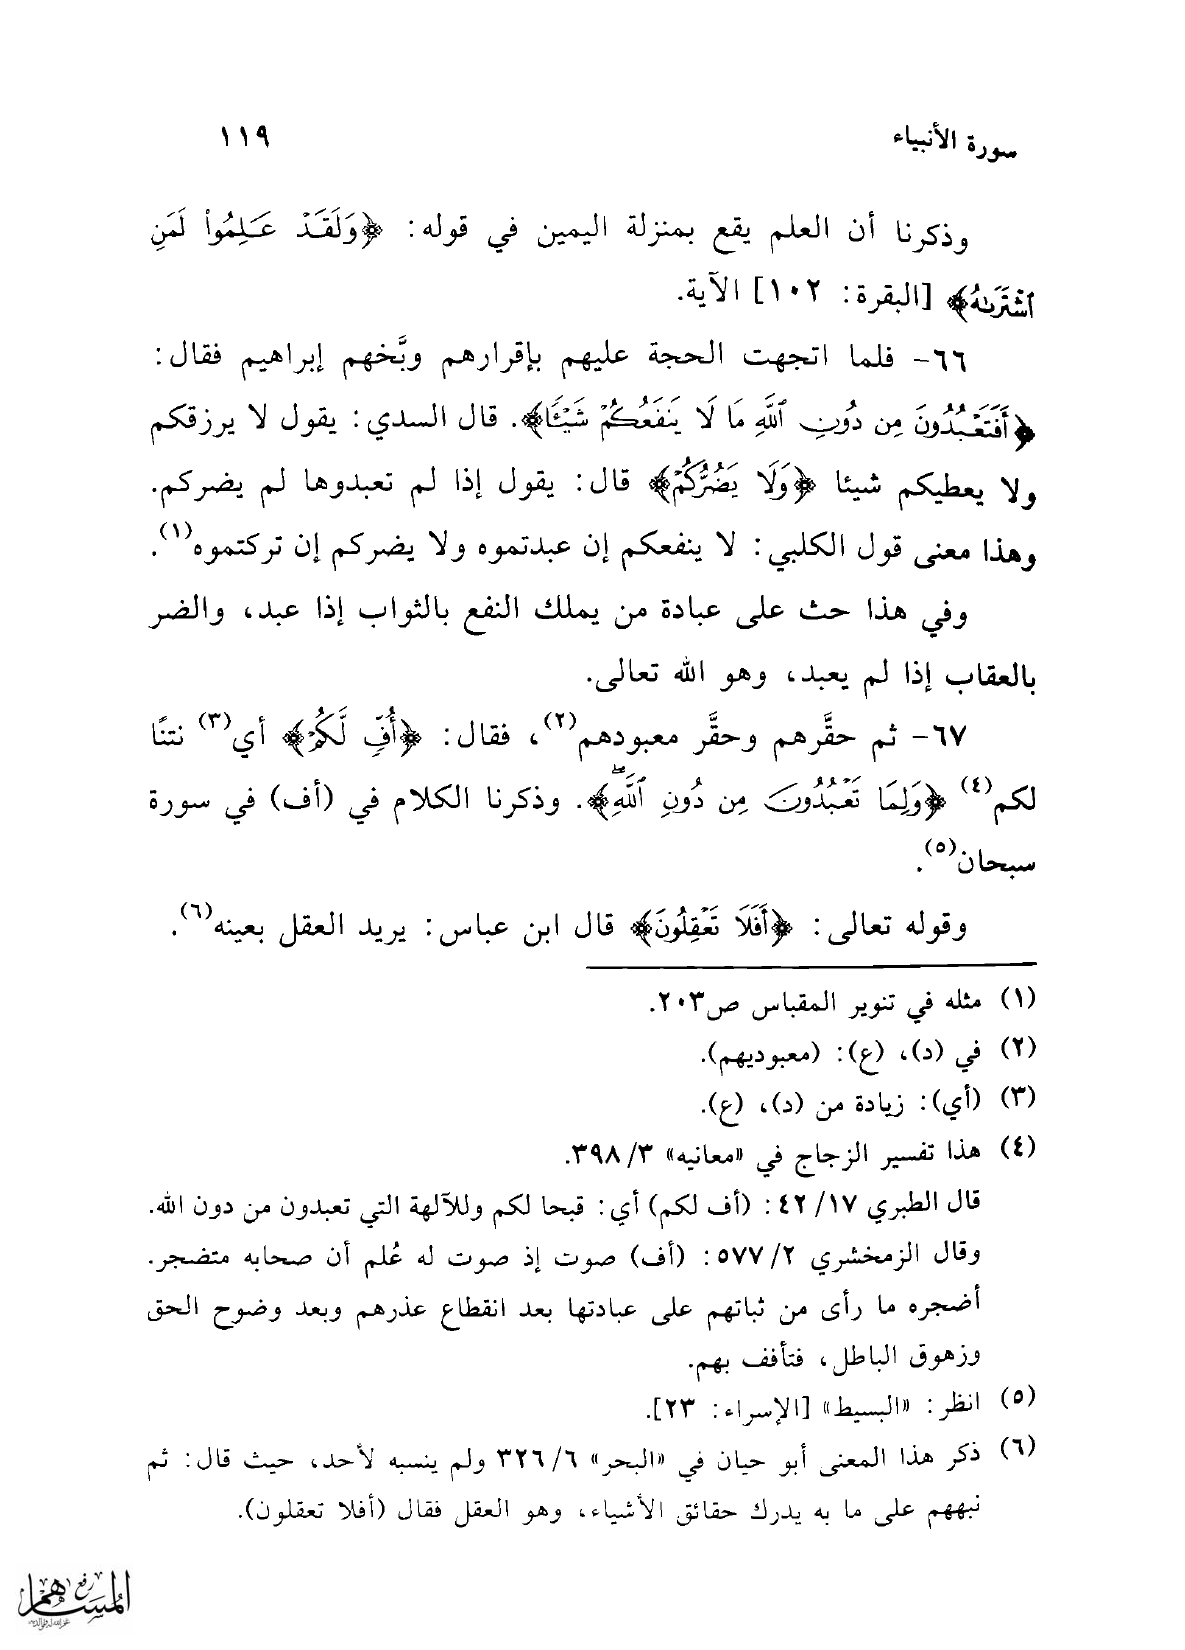 سورة الأنبياء ١١٩
وذكرنا أن العلم يقع بمنزلة اليمين في قوله: ﴿وَلَقَدْ عَلِمُواْ لَمَنِ
ٱشْتَرَىٰهُ﴾ [البقرة: ١٠٢] الآية.
٦٦- فلما اتجهت الحجة عليهم بإقرارهم وبَّخهم إبراهيم فقال:
﴿أَفَتَعْبُدُونَ مِن دُونِ ٱللَّهِ مَا لَا يَنفَعُكُمْ شَيْئًا﴾. قال السدي: يقول لا يرزقكم
ولا يعطيكم شيئا ﴿وَلَا يَضُرُّكُمْ﴾ قال: يقول إذا لم تعبدوها لم يضركم.
وهذا معنى قول الكلبي: لا ينفعكم إن عبدتموه ولا يضركم إن تركتموه(١).
وفي هذا حث على عبادة من يملك النفع بالثواب إذا عبد، والضر
بالعقاب إذا لم يعبد، وهو الله تعالى.
٦٧- ثم حقَّرهم وحقَّر معبودهم(٢)، فقال: ﴿أُفٍّ لَّكُمْ﴾ أي(٣) نتنًا
لكم(٤) ﴿وَلِمَا تَعْبُدُونَ مِن دُونِ ٱللَّهِۖ﴾. وذكرنا الكلام في (أف) في سورة
سبحان(٥).
وقوله تعالى: ﴿أَفَلَا تَعْقِلُونَ﴾ قال ابن عباس: يريد العقل بعينه(٦).
(١) مثله في تنوير المقباس ص٢٠٣.
(٢) في (د)، (ع): (معبوديهم).
(٣) (أي): زيادة من (د)، (ع).
(٤) هذا تفسير الزجاج في «معانيه» ٣/ ٣٩٨.
قال الطبري ١٧/ ٤٢: (أف لكم) أي: قبحا لكم وللآلهة التي تعبدون من دون الله.
وقال الزمخشري ٢/ ٥٧٧: (أف) صوت إذ صوت له عُلم أن صحابه متضجر.
أضجره ما رأى من ثباتهم على عبادتها بعد انقطاع عذرهم وبعد وضوح الحق
وزهوق الباطل، فتأفف بهم.
(٥) انظر: «البسيط» [الإسراء: ٢٣].
(٦) ذكر هذا المعنى أبو حيان في «البحر» ٦/ ٣٢٦ ولم ينسبه لأحد، حيث قال: ثم
نبههم على ما به يدرك حقائق الأشياء، وهو العقل فقال (أفلا تعقلون).